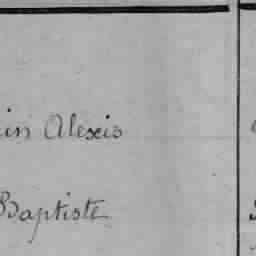 in Alexis
Baptiste